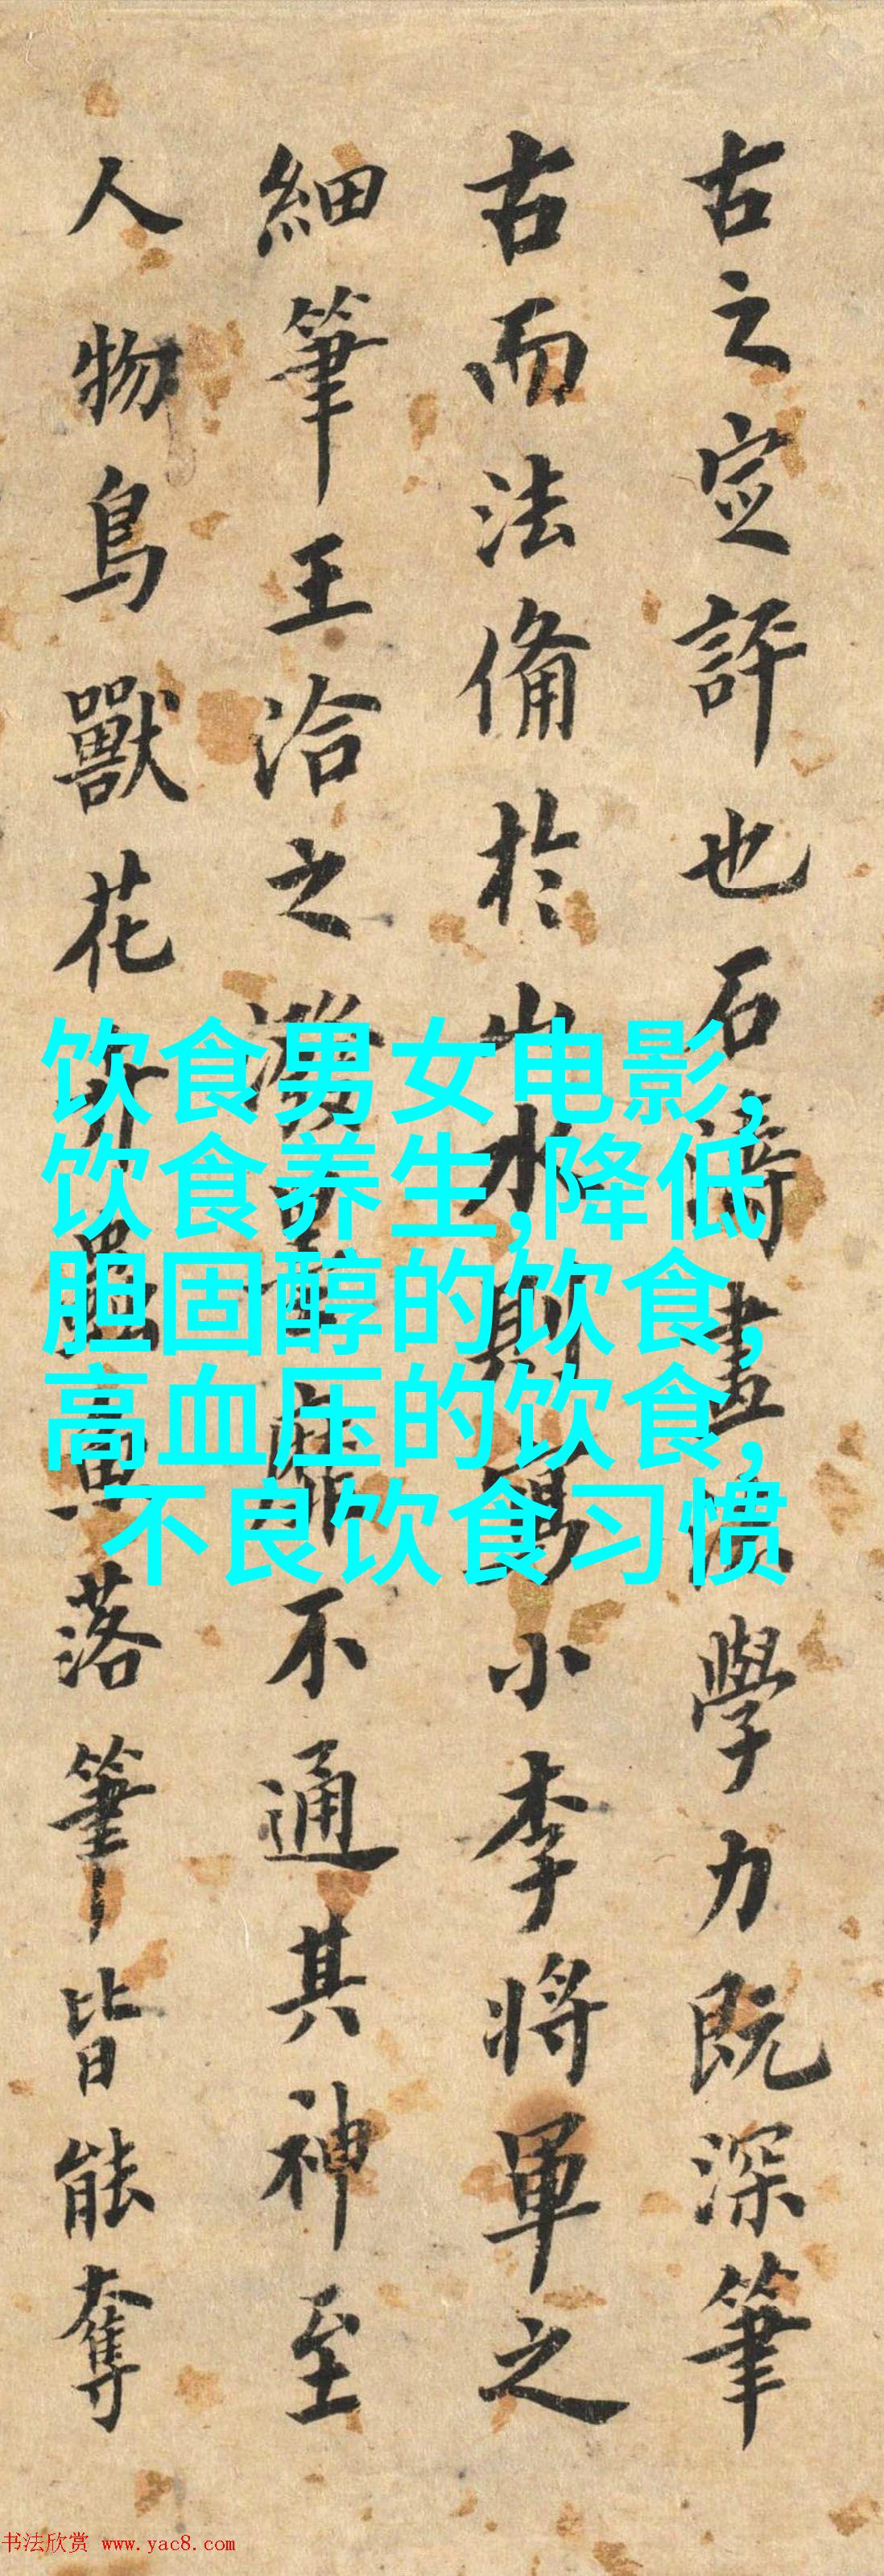 古之定評也石濤畫學力既深筆
古而法備於山水則寫小李將軍之
細筆王洽之潑墨靡不通其神至
人物鳥獸花卉蟲魚落筆皆能奪
饮食男女电影,
饮食养生,降低
胆固醇的饮食,
高血压的饮食,
不良饮食习惯
书法欣赏 www.yac8.com